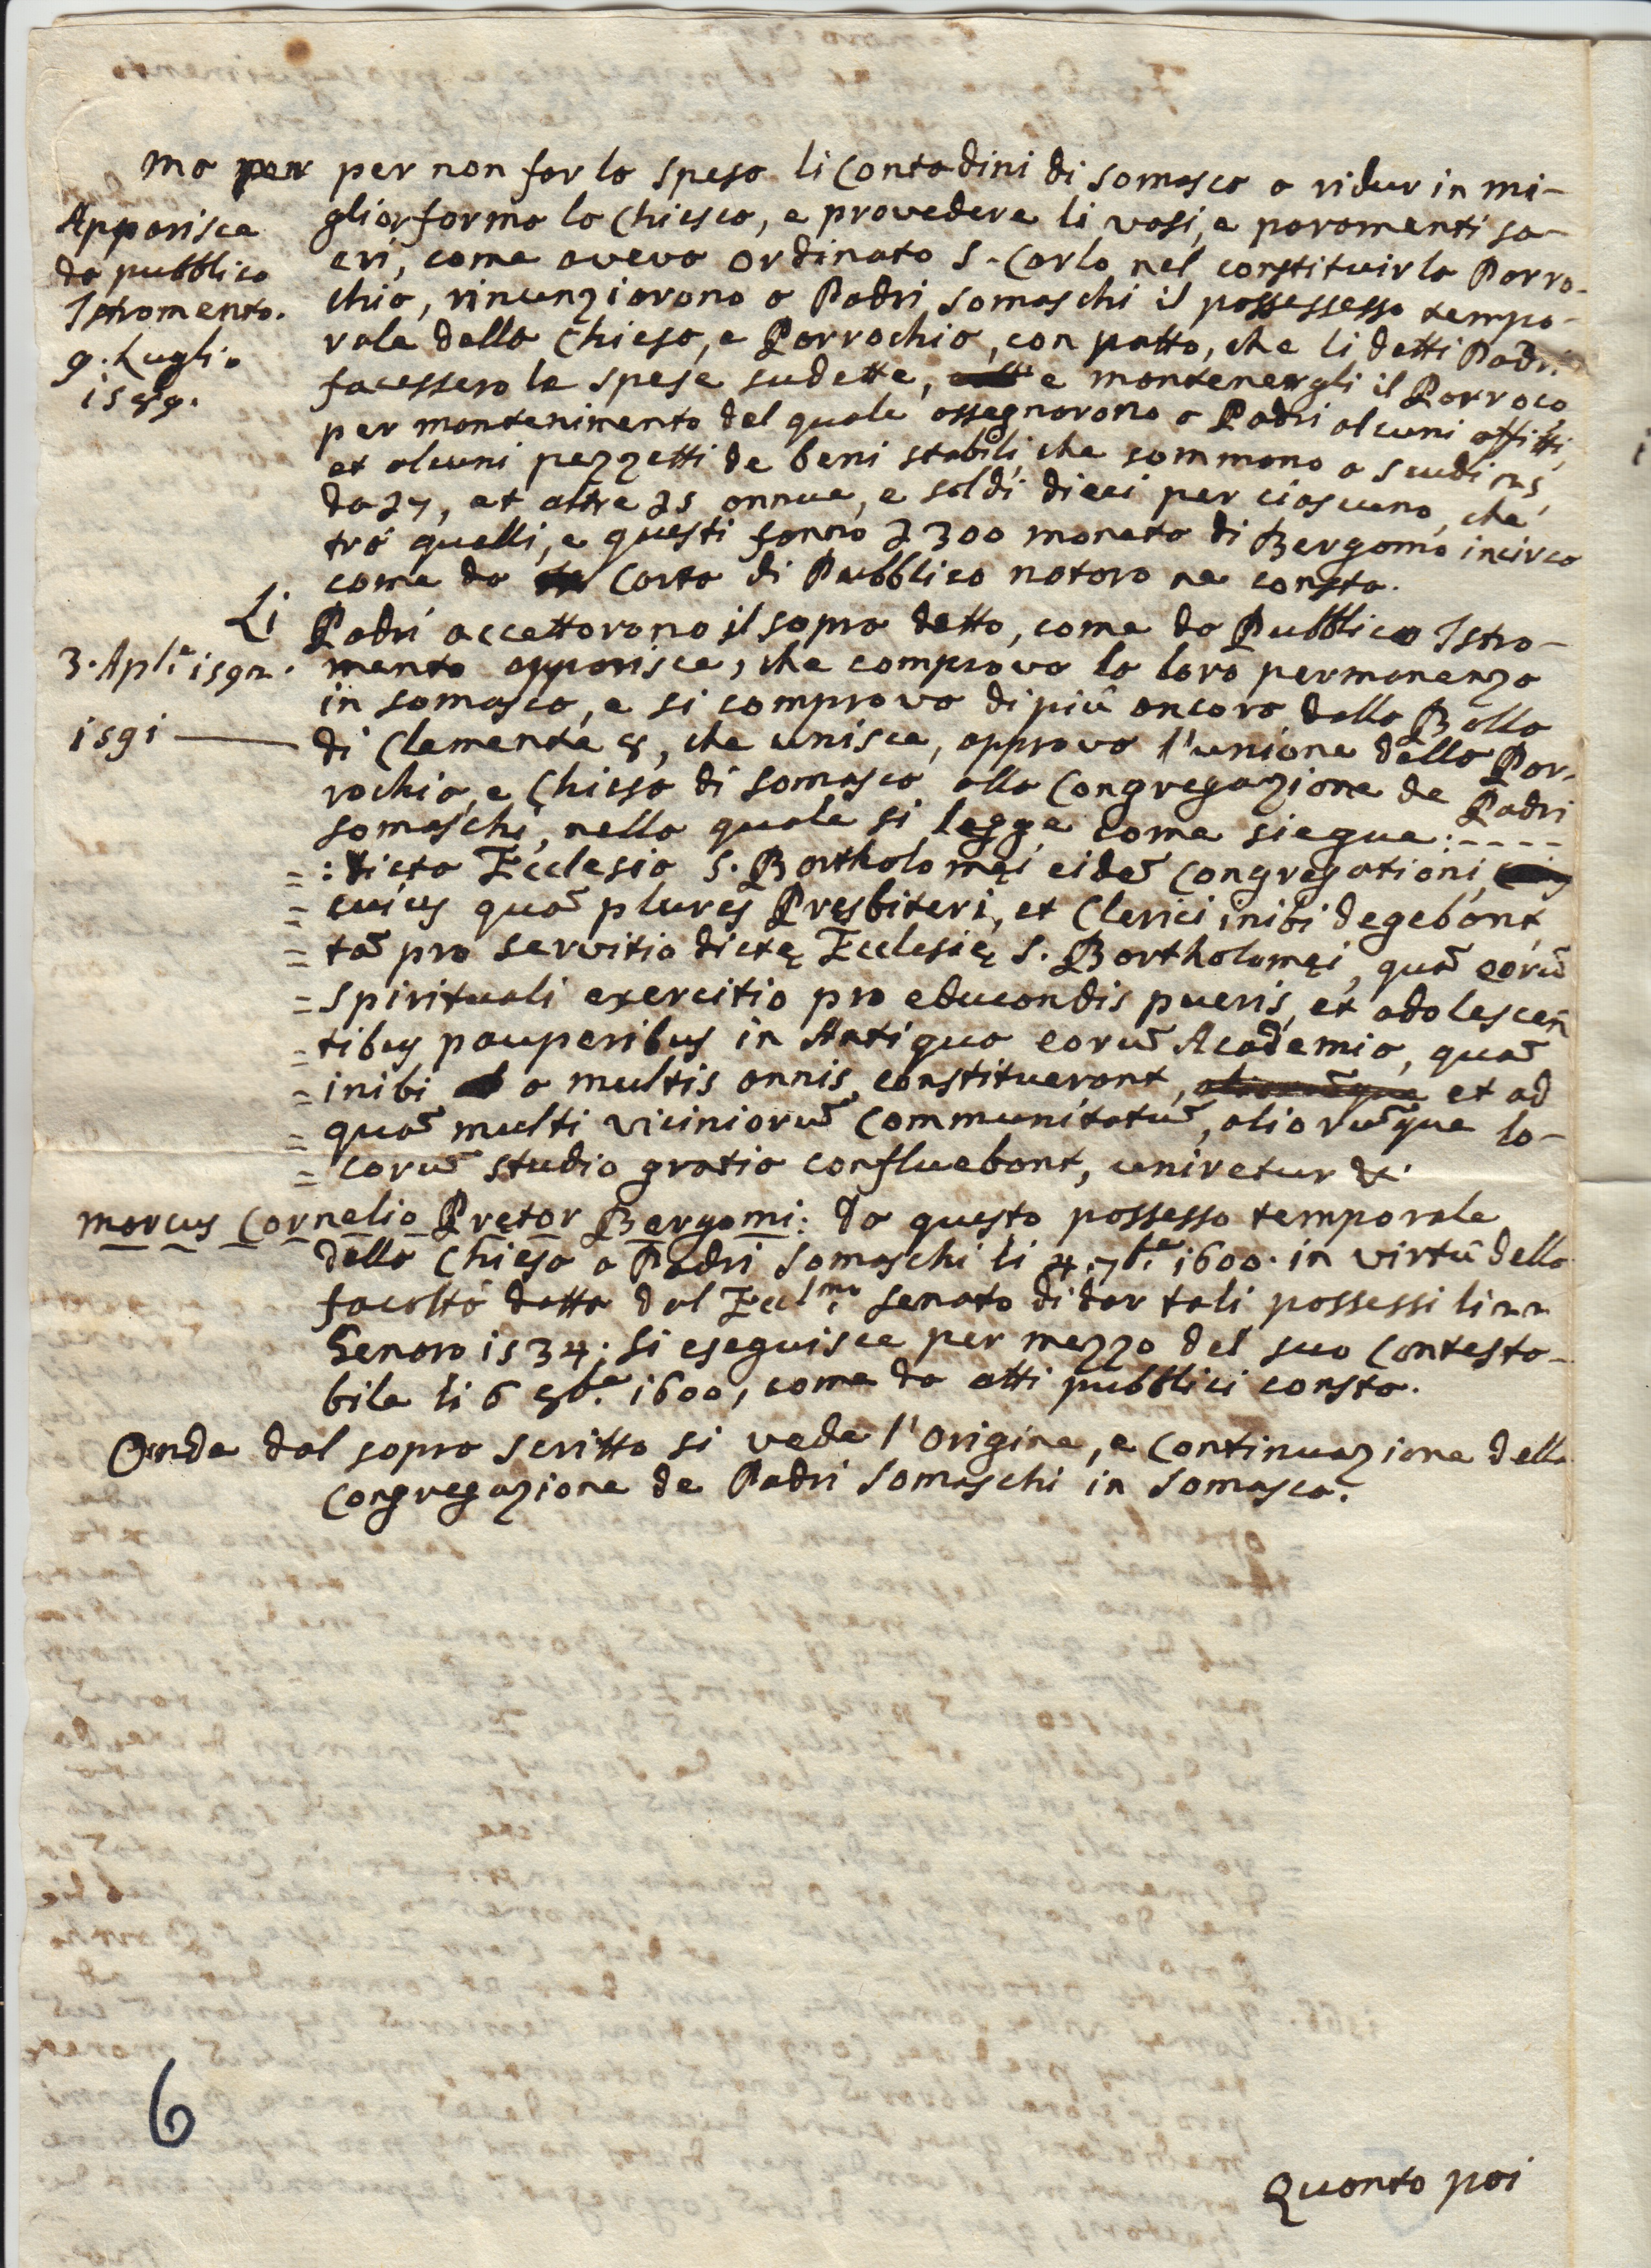 Ma per per non far la spesa li Contadini di Somasca a ridur in mi-
Apparisce
da pubblico
Istromento.
9. Luglio
1589.
glior forma la Chiesa, e provedere li vasi, e paramenti sa-
cri, come aveva ordinato S. Carlo nel constituirla Parro-
chia, rinunziarono a Padri Somaschi il possessesso tempo-
rale della Chiesa, e Parrochia, con patto, che li detti Padri
facessero le spese sudette, e mantenergli il Parroco,
per mantenimento del quale assegnarono a Padri alcuni affitti,
et alcuni pezzetti de beni stabili, che sommano a scudi
da 27, et altre 25 annue, e soldi dieci per ciascuno, che
trà quelli, e questi fanno 2300 moneta di Bergamo incirca
come da Carta di Pubblico notaro ne consta.
Li Padri accettarono il sopra detto, come da Pubblico Istro-
3. Aple 1592. mento apparisce, che comprova la loro permanenza
in Somasca, e si comprova di più ancora dalla Bolla
1591 — di Clemente 8, che unisce, approva l'unione della Par-
rochia, e Chiesa di Somasca alla Congregazione de Padri
Somaschi, nella quale si legge come siegue: - - - -
= : dicta Ecclesia S. Bartholomęi eidē Congregationi,
= cuius quā plures Pręsbiteri, et Clerici inibi degebant,
= tā pro servitio dictę Ecclesię S. Bartholomęi, quā eorū
= spirituali exercitio pro educandis pueris, et adolescen̄
= tibus pauperibus in Antiqua eorū Academia, quā
= inibi a multis annis constituerant, et ad
= quā multi viciniorū Communitatū, aliorūque lo-
= corū studio gratia confluebant, uniretur &
Marcus Cornelio Prętor Bergomi: da questo possesso temporale
della Chiesa a Padri Somaschi li 4. 7bre 1600. in virtù della
facoltà data dal Eccl.mo Senato di dar tali possessi li 22
Genaro 1534; si eseguisce per mezzo del suo Contesta-
bile li 6 8bre 1600, come da atti pubblici consta.
Onde dal sopra scritto si vede l'origine, e Continuazione della
Congregazione de Padri Somaschi in Somasca.
6
Quanto poi